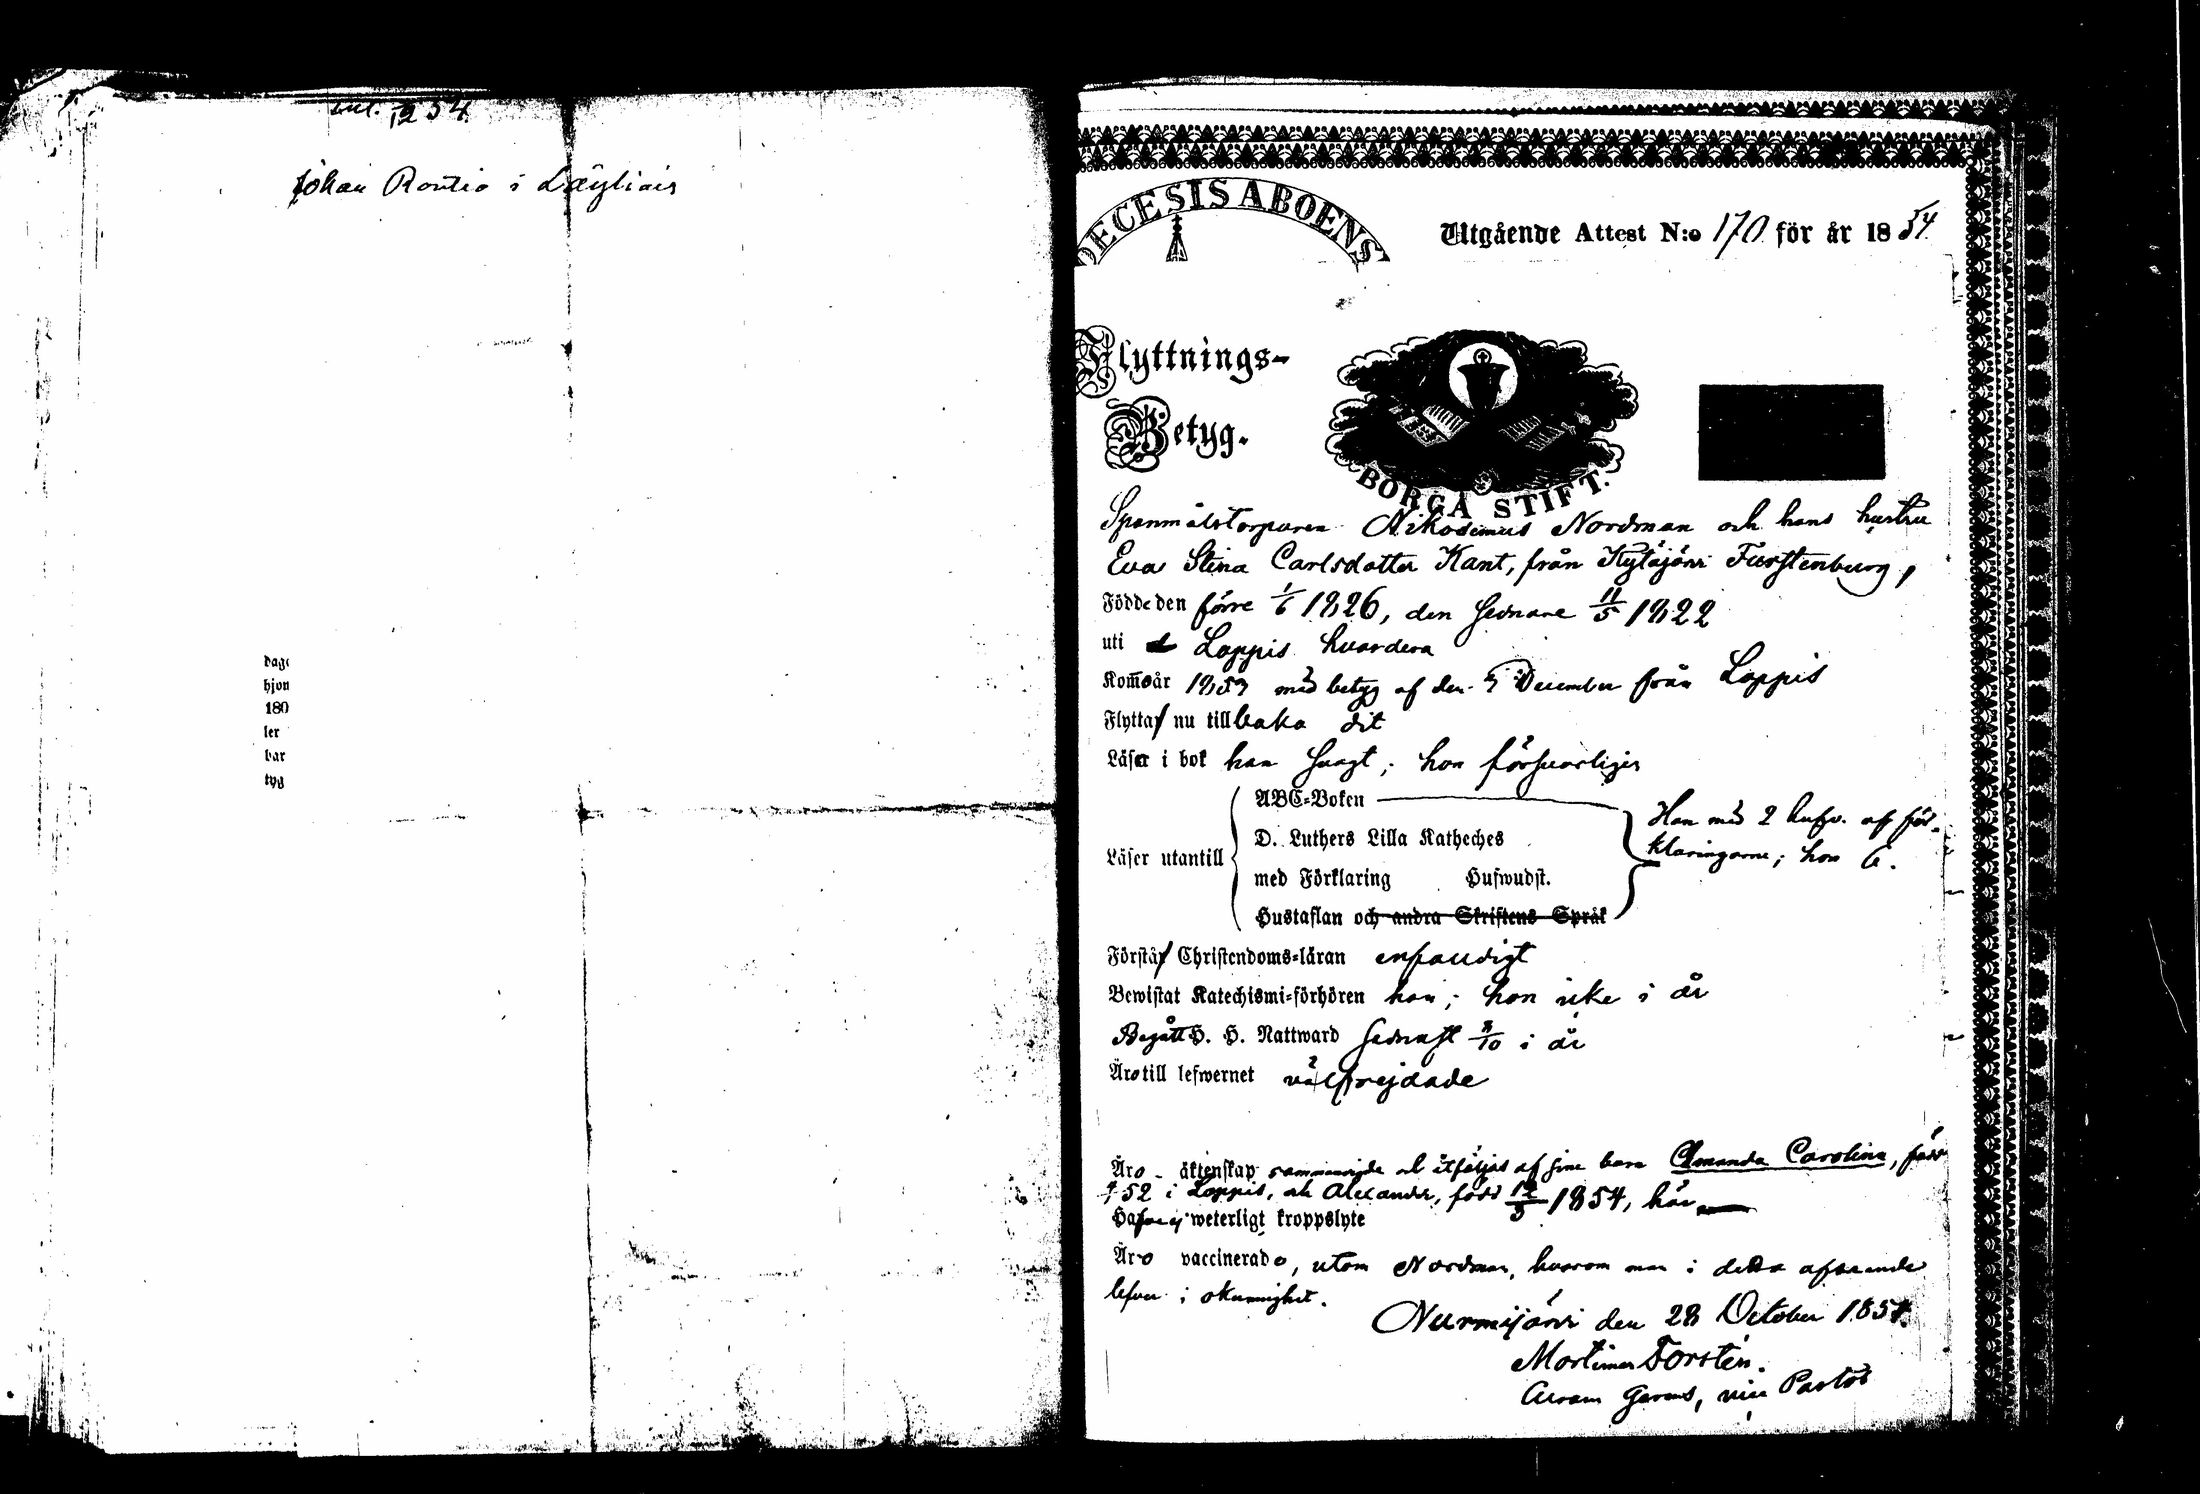 inl. 12 54
Johan Rontio i Läyliäis
dag
hjon
180
ler
bar
tyg
DECESIS ABOENS
Utgående Attest N:o 170 för år 1854
Flyttnings-
Betyg.
BORGÅ STIFT.
Spanmålstorparen Nikodemus Nordman och hans hustru
Eva Stina Carlsdotter Kant, från Kytäjärvi Furstenburg,
Födde den förre 1/6 1826, den sednare 11/5 1822
uti Loppis hvardera
Kom̅o år 1853 med betyg af den December från Loppis
Flytta nu till baka dit
Läser i bok han svagt; hon försvarligen
ABC-Boken
D. Luthers Lilla Katheches
Läser utantill
med Förklaring Hufwudst.
Hustaflan och andra Skriftens Språk
Han med 2 hufv. af för-
klaringarne; hon 6.
Förstå Christendoms-läran enfaldigt
Bewistat Katechismi-förhören han; hon icke i år
Begått H. H. Nattward sednast 8/10 i år
Äro till lefwernet välfrejdade
Äro äktenskap sammanvigde och åtföljas af sine barn Amanda Carolina, född
52 i Loppis, och Alexander, född 12/5 1854, här
Hafva ej weterligt kroppslyte
Äro vaccinerade, utom Nordman, hvarom man i detta afseende
lefver i okunnighet.
Nurmijärvi den 28 October 1854.
Mortimer Forstén.
vice Pastor